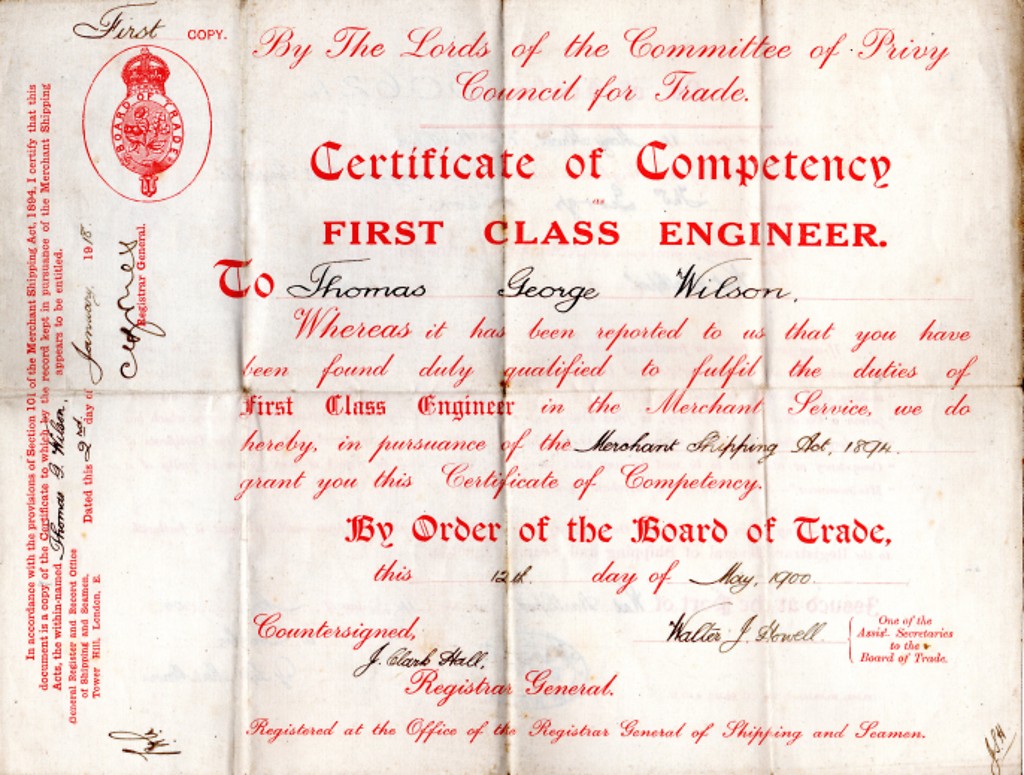 First COPY.
BOARD OF TRADE
By The Lords of the Committee of Privy
Council for Trade.
Certificate of Competency
as
FIRST CLASS ENGINEER.
To Thomas George Wilson.
Whereas it has been reported to us that you have
been found duly qualified to fulfil the duties of
First Class Engineer in the Merchant Service, we do
hereby, in pursuance of the Merchant Shipping Act, 1894.
grant you this Certificate of Competency.
By Order of the Board of Trade,
this 12th. day of May, 1900.
Countersigned,
J. Clark Hall.
Registrar General.
Walter J Howell
One of the
Assist. Secretaries
to the
Board of Trade.
Registered at the Office of the Registrar General of Shipping and Seamen.
In accordance with the provisions of Section 101 of the Merchant Shipping Act, 1894, I certify that this
document is a copy of the Certificate to which by the record kept in pursuance of the Merchant Shipping
Acts, the within-named Thomas G. Wilson, appears to be entitled.
Dated this 2nd day of January, 1918.
General Register and Record Office
of Shipping and Seamen,
Tower Hill, London, E.
Registrar General.